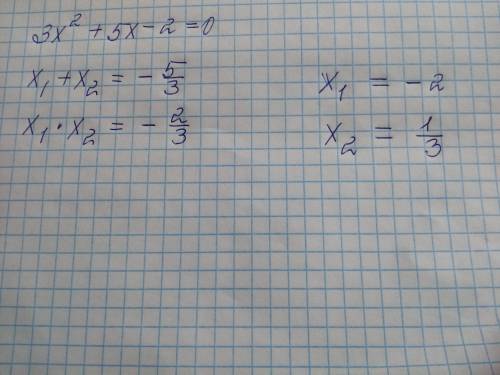 3x² + 5x - 2 = 0
x₁ + x₂ = - 5/3
x₁ · x₂ = - 2/3
x₁ = - 2
x₂ = 1/3